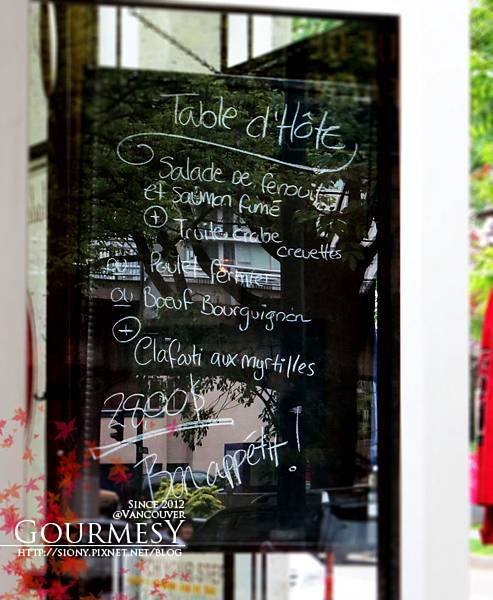 Table d'Hôte
Salade de fenouil
et saumon fumé
+ Truite crabe
crevettes
ou Poulet fermier
ou Boeuf Bourguignon
+
Clafouti aux myrtilles
28.00$
Bon appétit!
SINCE 2012
@VANCOUVER
GOURMESY
HTTP://SIONY.PIXNET.NET/BLOG